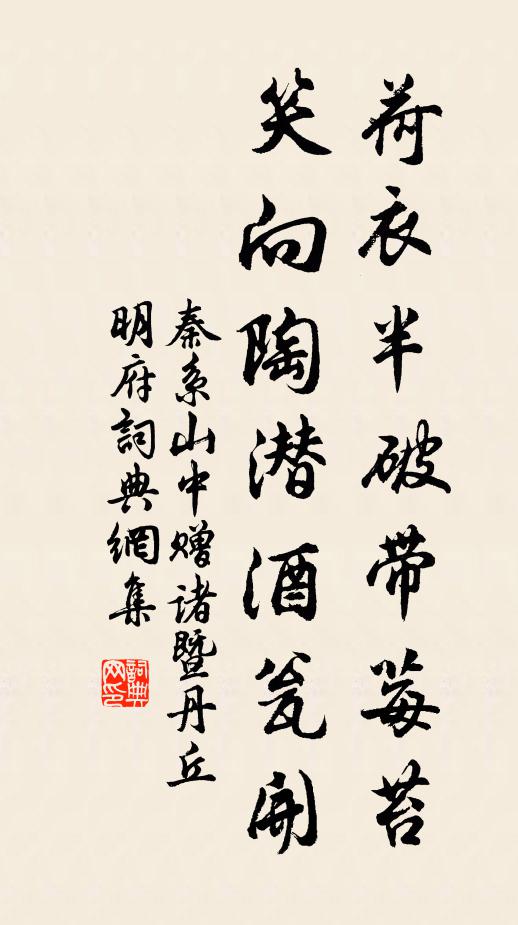 荷衣半破带莓苔
笑向陶潜酒瓮开
秦系山中赠诸暨丹丘
明府詞典網集
詞典
网印